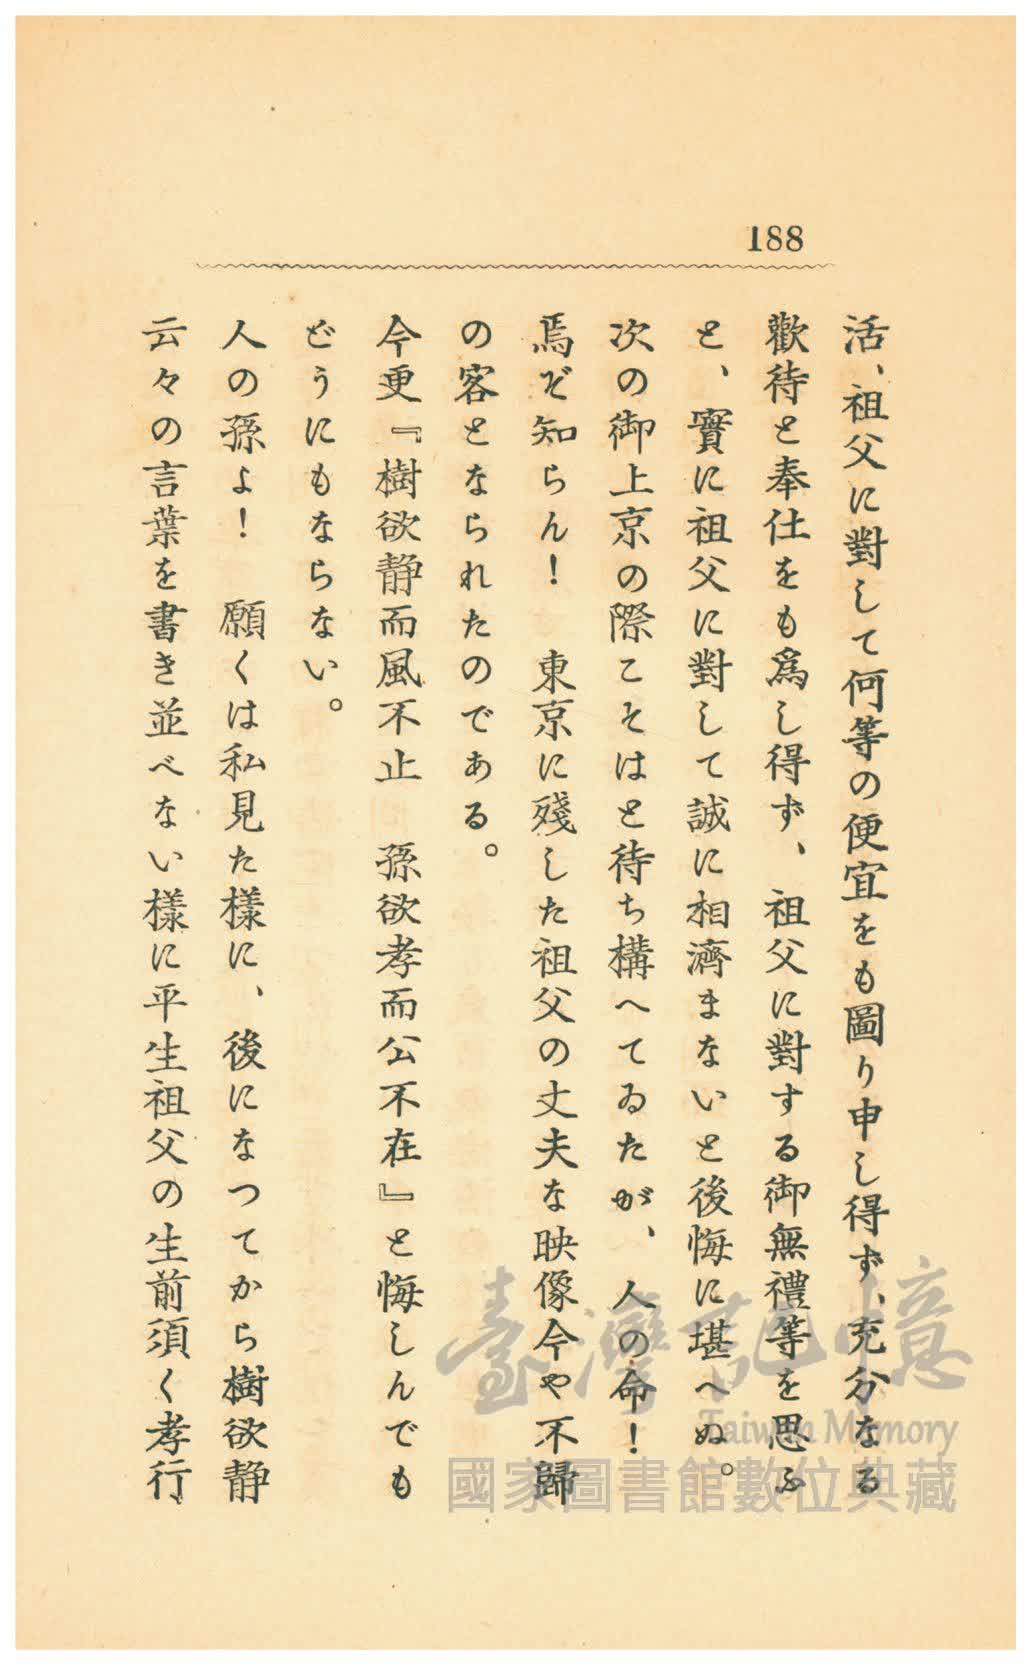 188
活、祖父に對して何等の便宜をも圖り申し得ず、充分なる
歡待と奉仕をも爲し得ず、祖父に對する御無禮等を思ふ
と、實に祖父に對して誠に相濟まないと後悔に堪へぬ。
次の御上京の際こそはと待ち構へてゐたが、人の命！
焉ぞ知らん！　東京に殘した祖父の丈夫な映像今や不歸
の客となられたのである。
今更『樹欲靜而風不止　孫欲孝而公不在』と悔しんでも
どうにもならない。
人の孫よ！　願くは私見た樣に、後になつてから樹欲靜
云々の言葉を書き並べない樣に平生祖父の生前須く孝行
臺灣記憶
Taiwan Memory
國家圖書館數位典藏